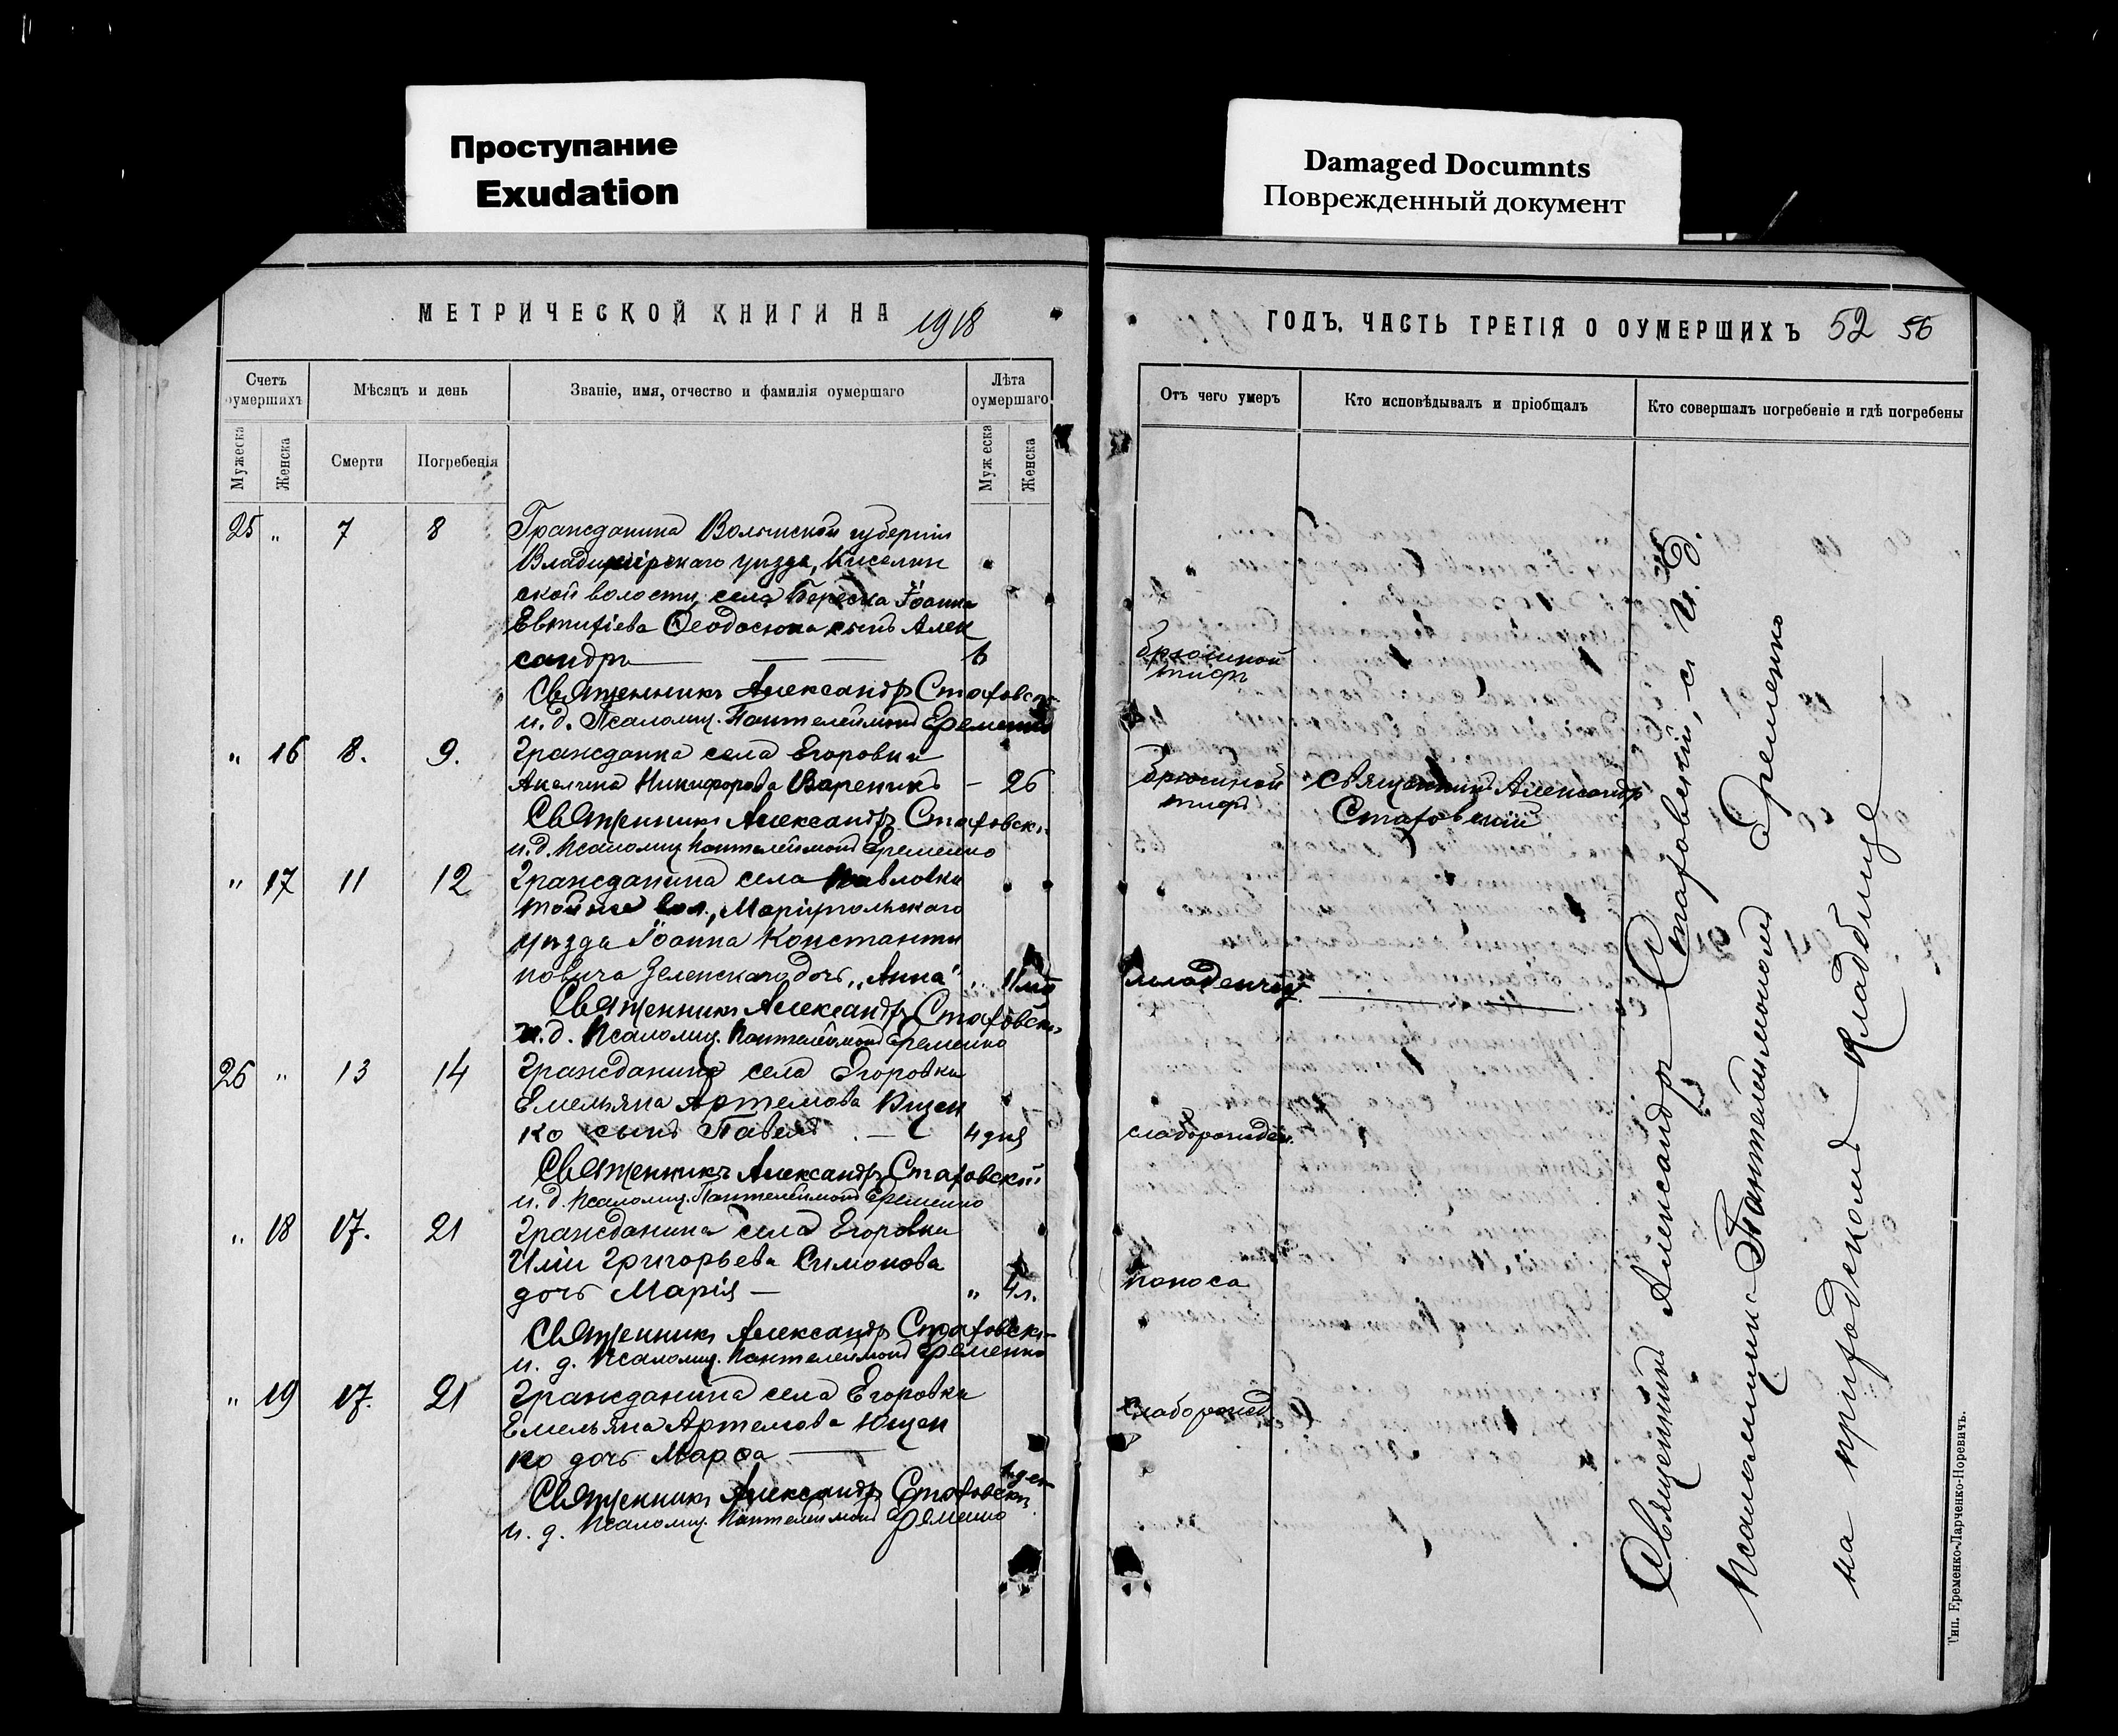 Проступание
Exudation
Damaged Documnts
Поврежденный документ
МЕТРИЧЕСКОЙ КНИГИ НА 1918
ГОДЪ, ЧАСТЬ ТРЕТІЯ О ОУМЕРШИХЪ 52 56
Счетъ оумершихъ
Мѣсяцъ и день
Званіе, имя, отчество и фамилія оумершаго
Лѣта оумершаго
Мужеска
Женска
Смерти
Погребенія
Мужеска
Женска
Отъ чего умеръ
Кто исповѣдывалъ и пріобщалъ
Кто совершалъ погребеніе и гдѣ погребены
25 " 7 8 Гражданина Волынской губерніи
Владимірскаго уѣзда, Киселин
ской волости, села Береска Іоанна
Евтихіева Ѳеодосюка сынъ Алек
сандръ 6 брюшной
тифъ
Священникъ Александръ Стаховскій
и. д. Псаломщ. Пантелеймонъ Еременко
" 16 8. 9. Гражданка села Егоровки
Акелина Никифорова Вареникъ – 26 брюшной Священникъ Александръ
тифъ Стаховскій
Священникъ Александръ Стаховскій
и. д. Псаломщ. Пантелеймонъ Еременко
" 17 11 12 Гражданина села Павловки
той же вол., Маріупольскаго
уѣзда Іоанна Константи
новича Зеленскаго дочь „Анна" " 11 младенч.
Священникъ Александръ Стаховскій
и. д. Псаломщ. Пантелеймонъ Еременко
26 " 13 14 Гражданина села Егоровки
Емельяна Артемова Ющен
ко сынъ Павелъ 4 дня слаборожден.
Священникъ Александръ Стаховскій
и. д. Псаломщ. Пантелеймонъ Еременко
" 18 17. 21 Гражданина села Егоровки
Иліи Григорьева Симонова
дочь Марія – " 4 л. поноса
Священникъ Александръ Стаховскій
и. д. Псаломщ. Пантелеймонъ Еременко
" 19 17. 21 Гражданина села Егоровки
Емельяна Артемова Ющен
ко дочь Марфа слаборожд
Священникъ Александръ Стаховскій
и. д. Псаломщ. Пантелеймонъ Еременко
Священникъ Александръ Стаховскій, съ и. д.
Псаломщика Пантелеймономъ Еременко
на приходскомъ кладбище
Тип. Еременко-Ларченко-Норевичъ.